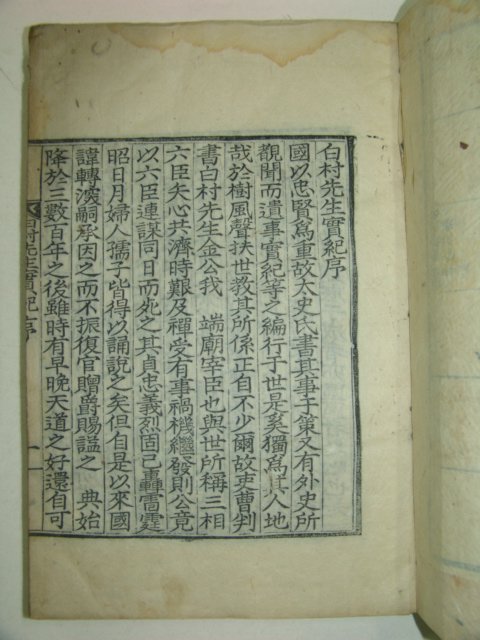 白村先生實紀序
國以忠賢爲重故太史氏書其事于策又有外史所
覩聞而遺事實紀等之編行于世是奚獨爲其人地
哉於樹風聲扶世敎其所係正自不少爾故吏曹判
書白村先生金公我 端廟宰臣也與世所稱三相
六臣矢心共濟時艱及禪受有事禍機繼發則公竟
以六臣連謀同日而死之其貞忠義烈固已轟雷霆
昭日月婦人孺子皆得以誦說之矣但自是以來國
諱轉深嗣承因之而不振復官贈爵賜謚之 典始
降於三數百年之後雖時有早晚天道之好還自可
白村先生實紀序 一